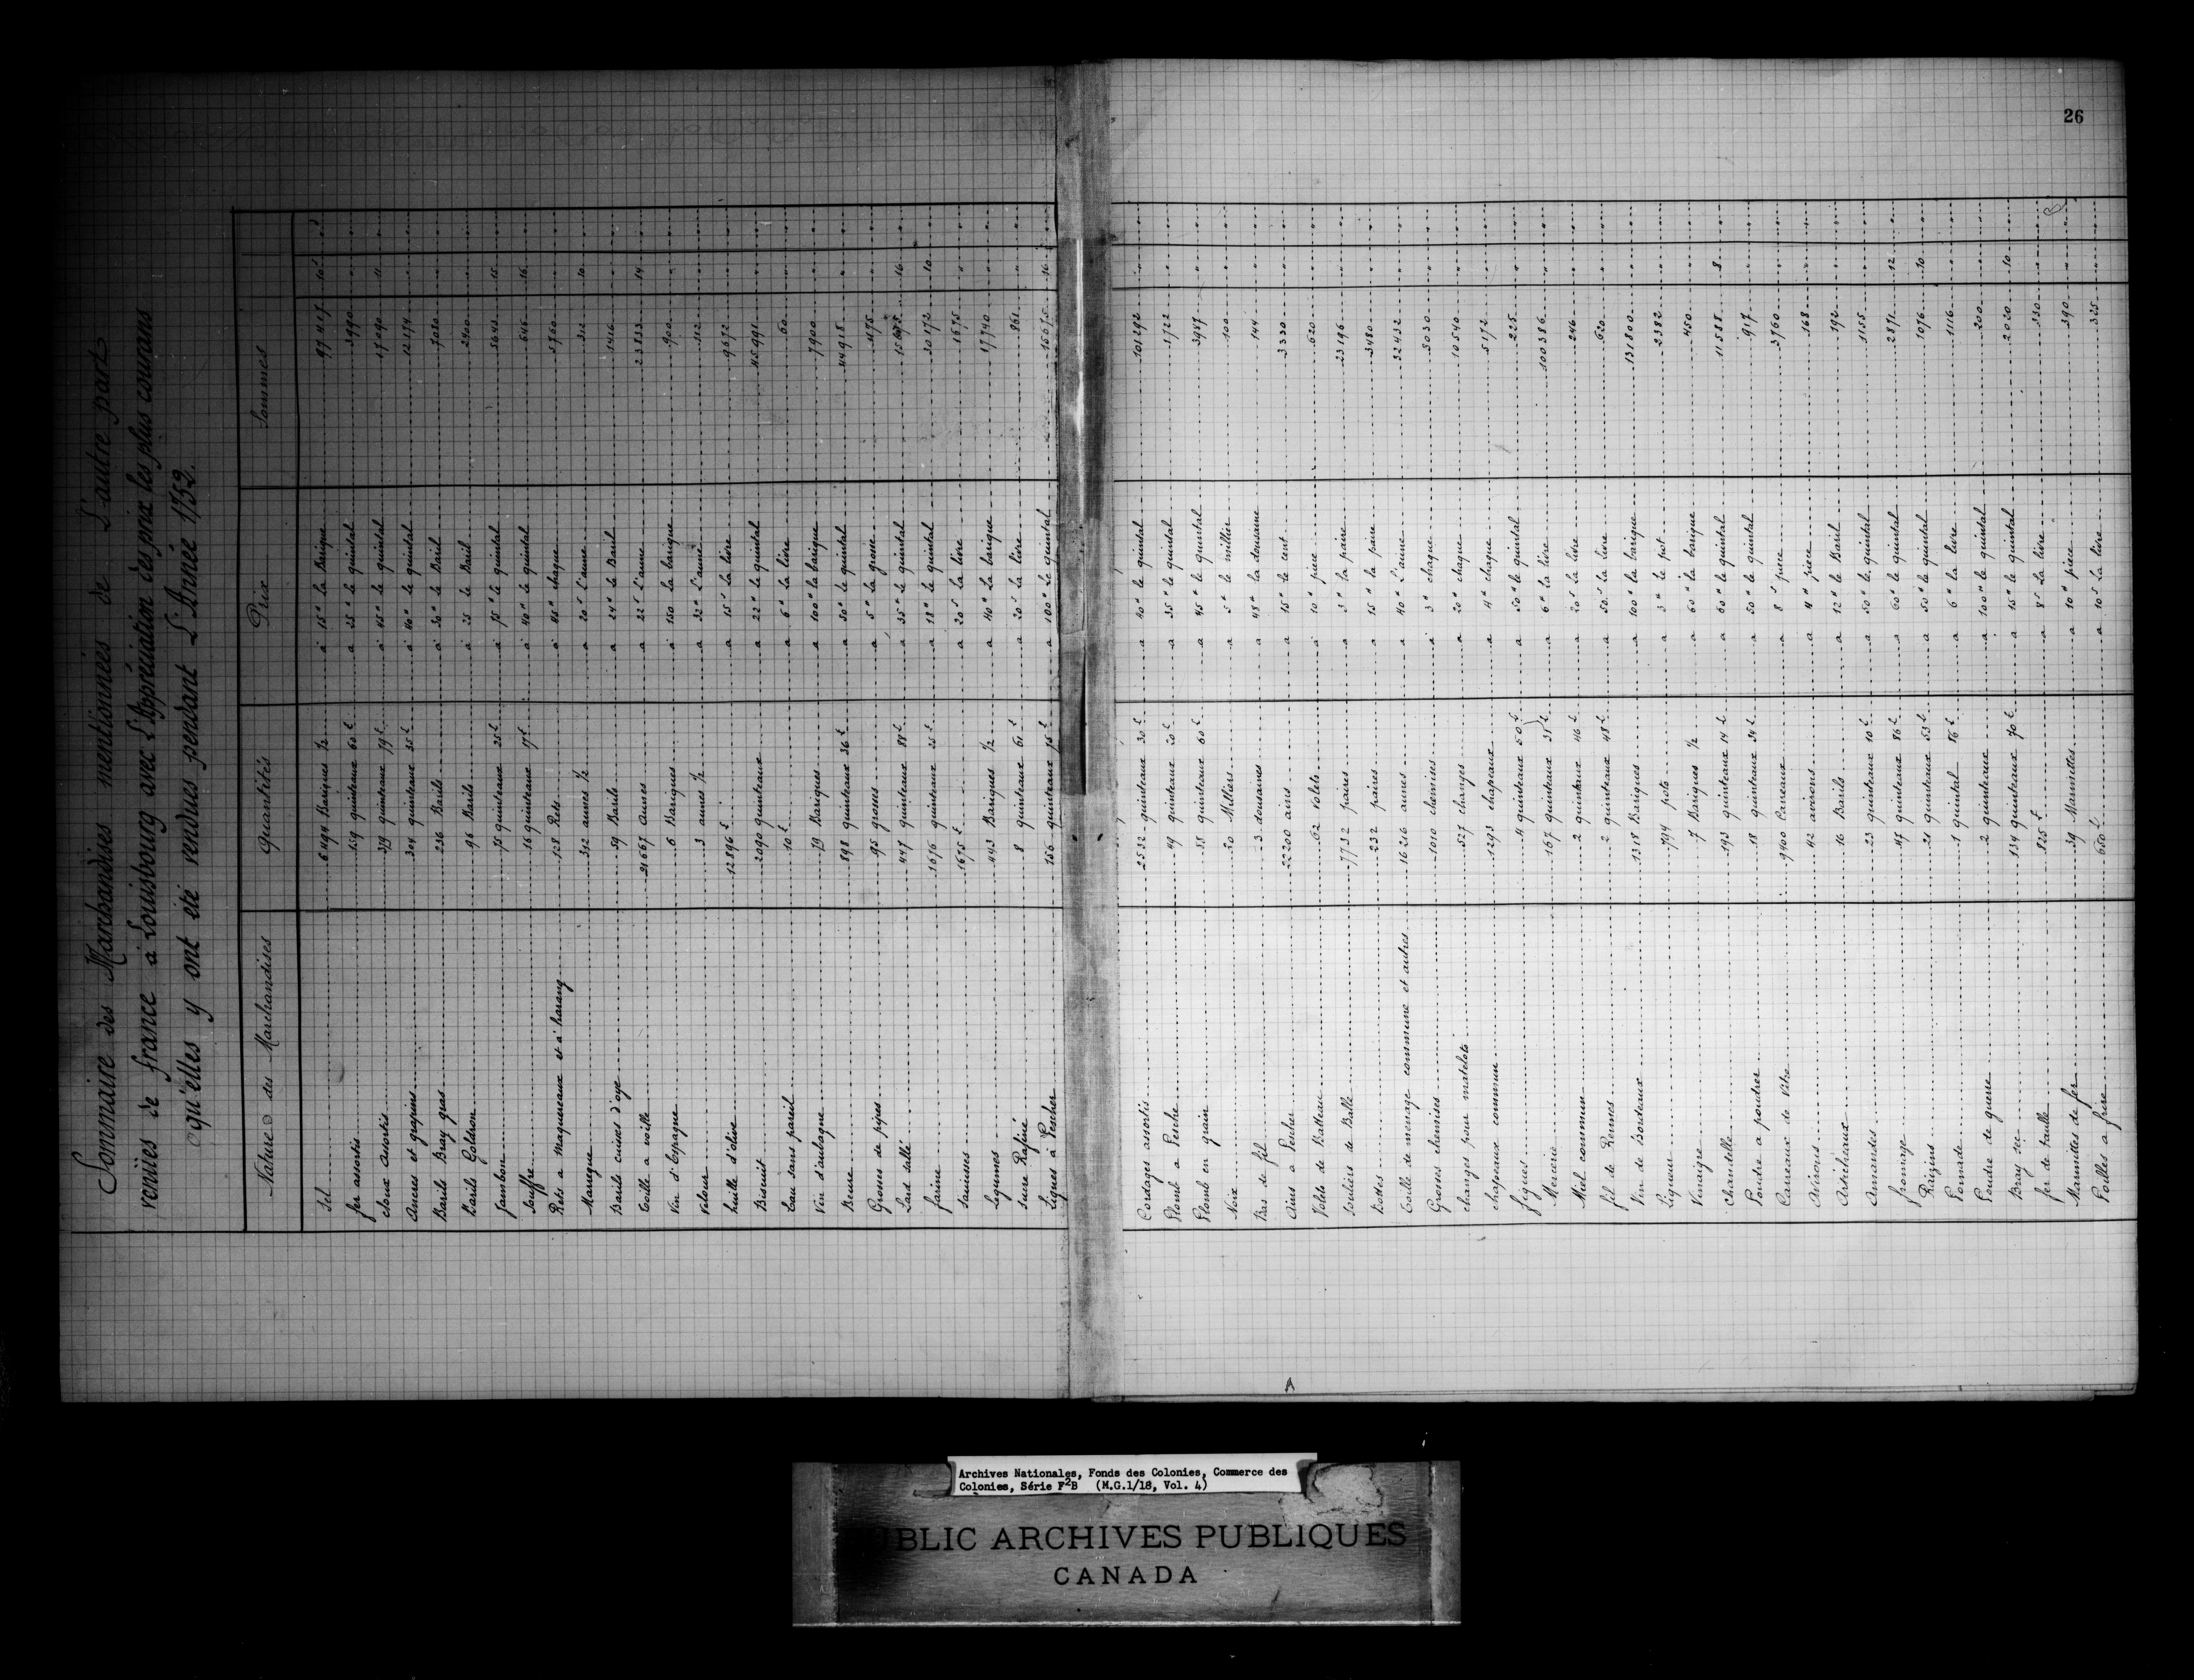 26
Sommaire des Marchandises mentionnées de L'autre part
venües de france à Louisbourg avec L'Appréciation des prix les plus courans
qu'elles y ont été vendues pendant L'Année 1752.
Nature des Marchandises Quantités Prix Sommes
Sel 6494 Bariques 1/2 a 15" La Barique 97417 10s
fer assortis 159 quinteaux 60 £ a 25" le quintal 3990
Cloux assortis 379 quinteaux 79 £ a 45" le quintal 17090 11
Ancres et grapins 304 quinteaux 35 £ a 40" le quintal 12174
Barils Bray gras 236 Barils a 30" le Baril 7080
Barils Goldron 96 Barils a 25 le Baril 2400
Jambon 75 quinteaux 25 £ a 75" le quintal 5643 15
Souffre 16 quinteaux 17 £ a 40" le quintal 646 16
Rets a Maquereaux et a harang 128 Rets a 45" chaque 5760
Maneque 312 aunes 1/2 a 20s L'aune 312 10
Barils cuises d'oye 59 Barils a 24" le Baril 1416
Toille a voille 21667 Aunes a 22s L'aune 23833 14
Vin d'Espagne 6 Bariques a 150 La barique 900
Velour 3 aunes 1/2 a 32" L'aune 112
huille d'olive 12896 £ a 15s La livre 9672
Biscuit 2090 quinteaux a 22" le quintal 45991
Eau sans pareil 10 £ a 6" La livre 60
Vin d'aubagne 79 Bariques a 100" la barique 7900
Beure 898 quinteaux 36 £ a 50" le quintal 44918
Grosses de pipes 95 grosses a 5" La grosse 475
Lard sallé 447 quinteaux 88 £ a 35" le quintal 15675 16
farine 1676 quinteaux 25 £ a 18" le quintal 30172 10
Saucisses 1675 £ a 20s La livre 1675
Legumes 443 Bariques 1/2 a 40" La barique 17740
Sucre Rafiné 8 quinteaux 61 £ a 20s La livre 861
Lignes à Pescher 156 quinteaux 75 £ a 100" le quintal 15675 16
Cordages assortis 2532 quinteaux 30 £ a 40" le quintal 101292
Plomb a Pesche 49 quinteaux 20 £ a 35" le quintal 1722
Plomb en grain 88 quinteaux 60 £ a 45" le quintal 3987
Noix 20 Milliers a 5" le millier 100
Bas de fil 3 dousaines a 48" la dousaine 144
Ains a Pescher 22200 ains a 15" le cent 3330
Volets de Batteau 62 Volets a 10" piece 620
Souliers de Balle 7732 paires a 3" la paire 23196
Bottes 232 paires a 15" la paire 3480
Toille de menage commune et autres 1626 aunes a 40" L'aune 32432
Grosses chemises 1010 chemises a 3" chaque 3030
Changes pour matelots 527 changes a 20" chaque 10540
chapeaux commun 1293 chapeaux a 4" chaque 5172
figues 4 quinteaux 50 £ a 50" le quintal 225
Mercerie 167 quinteaux 31 £ a 6" La livre 100386
Miel commun 2 quinteaux 46 £ a 20s La livre 246
fil de Rennes 2 quinteaux 48 £ a 50s La livre 620
Vin de Bordeaux 1318 Bariques a 100" la barique 131800
Liqueur 794 pots a 3" le pot 2382
Vinaigre 7 Bariques 1/2 a 60" la barique 450
Chandelle 193 quinteaux 14 £ a 60" le quintal 11588 8
Poudre a poudrer 18 quinteaux 34 £ a 50" le quintal 917
Carreaux de Vitre 9400 Careaux a 8s piece 3760
Avirons 42 avirons a 4" piece 168
Artichaux 16 Barils a 12" le Baril 192
Amandes 23 quinteaux 10 £ a 50" le quintal 1155
fromage 47 quinteaux 86 £ a 60" le quintal 2871 12
Raizins 21 quinteaux 53 £ a 50" le quintal 1076 10
Pomade 1 quintal 86 £ a 6" La livre 1116
Poudre de guerre 2 quinteaux a 100" le quintal 200
Bray sec 134 quinteaux 70 £ a 15" le quintal 2020 10
fer de taulle 825 £ a 8s La livre 330
Marmittes de fer 39 Marmittes a 10" piece 390
Poilles a frire 650 £ a 10s La livre 325
A
Archives Nationales, Fonds des Colonies, Commerce des
Colonies, Série F2B (M.G.1/18, Vol. 4)
PUBLIC ARCHIVES PUBLIQUES
CANADA